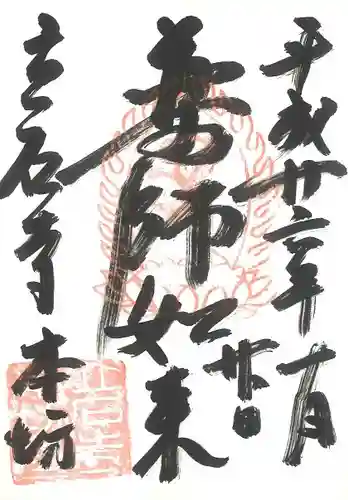 平成廿三年十一月
廿日
薬師如来
立石寺
本坊